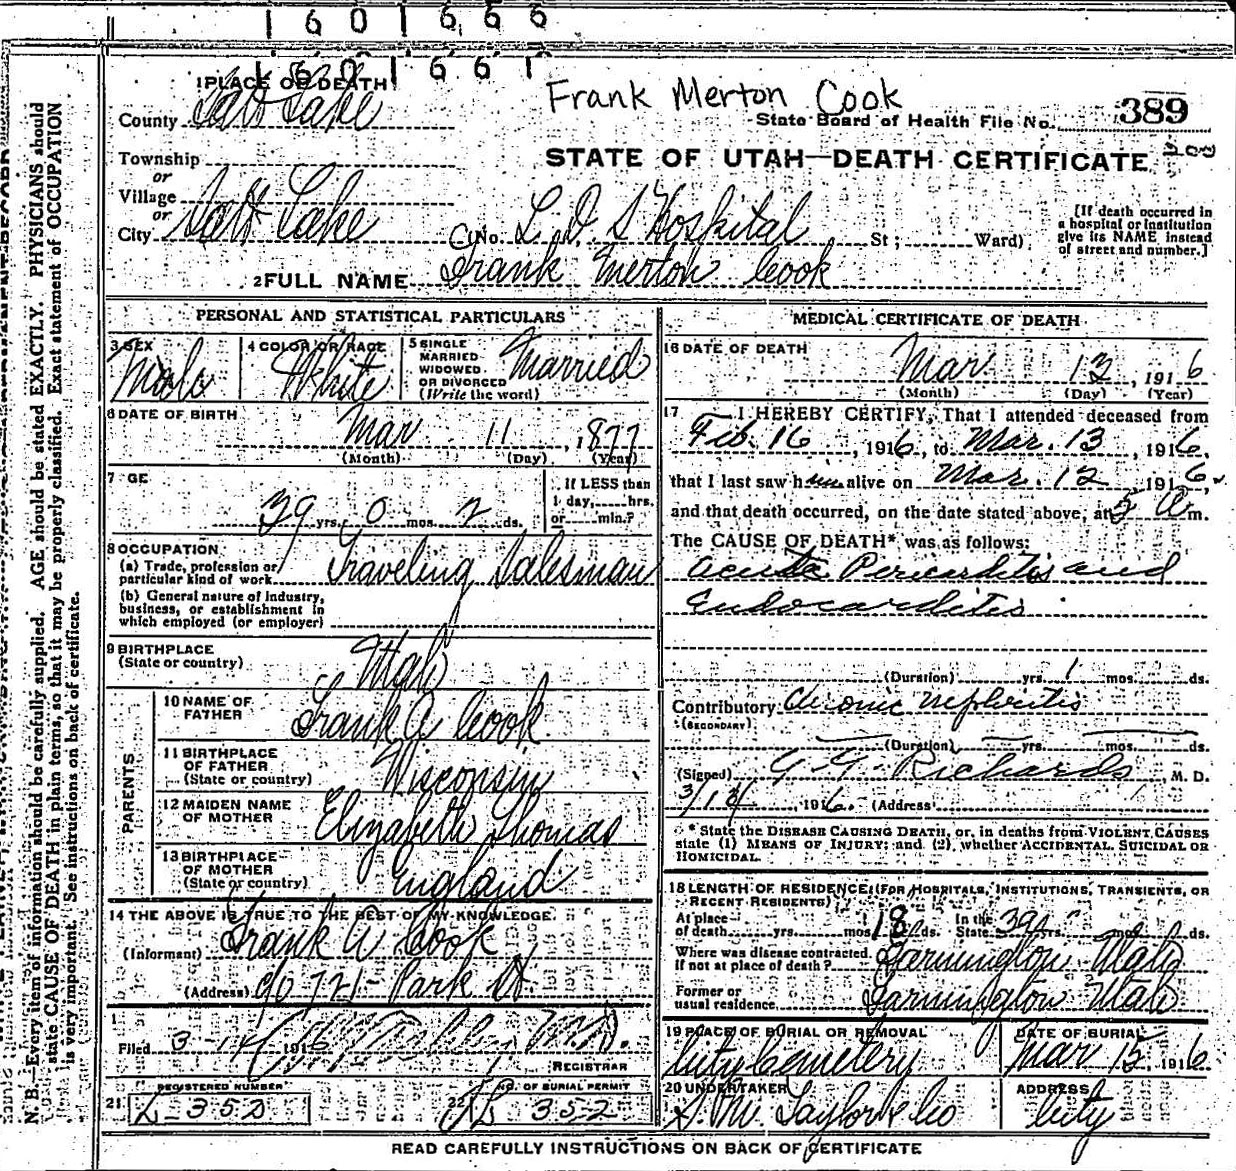 1601666
1601661
Frank Merton Cook
1 PLACE OF DEATH
County Salt Lake
State Board of Health File No. 389
Township
STATE OF UTAH—DEATH CERTIFICATE
or
Village
or
City Salt Lake (No. L D S Hospital St; Ward)
[If death occurred in a hospital or institution give its NAME instead of street and number.]
2 FULL NAME Frank Merton Cook
PERSONAL AND STATISTICAL PARTICULARS
3 SEX Male
4 COLOR OR RACE White
5 SINGLE MARRIED WIDOWED OR DIVORCED (Write the word) Married
6 DATE OF BIRTH Mar 11, 1877
(Month) (Day) (Year)
7 GE 39 yrs. 0 mos. 2 ds.
If LESS than 1 day, hrs. or min.?
8 OCCUPATION
(a) Trade, profession or particular kind of work Traveling Salesman
(b) General nature of Industry, business, or establishment in which employed (or employer)
9 BIRTHPLACE
(State or country) Utah
PARENTS
10 NAME OF FATHER Frank A Cook
11 BIRTHPLACE OF FATHER (State or country) Wisconsin
12 MAIDEN NAME OF MOTHER Elizabeth Thomas
13 BIRTHPLACE OF MOTHER (State or country) England
14 THE ABOVE IS TRUE TO THE BEST OF MY KNOWLEDGE
(Informant) Frank A Cook
(Address) 721 Park
Filed 3-14 1916 M.D.
REGISTRAR
REGISTERED NUMBER NO. OF BURIAL PERMIT
21 L-352 22 352
MEDICAL CERTIFICATE OF DEATH
16 DATE OF DEATH
Mar 13, 1916
(Month) (Day) (Year)
17 I HEREBY CERTIFY, That I attended deceased from
Feb. 16, 1916, to Mar. 13, 1916,
that I last saw him alive on Mar. 12 1916,
and that death occurred, on the date stated above, at 5 A m.
The CAUSE OF DEATH* was as follows:
Acute Pericarditis and
Endocarditis
(Duration) yrs. 1 mos. ds.
Contributory Chronic Nephritis
(SECONDARY)
(Duration) yrs. mos. ds.
(Signed) G. G. Richards, M. D.
3/13, 1916. (Address)
* State the DISEASE CAUSING DEATH, or, in deaths from VIOLENT CAUSES
state (1) MEANS OF INJURY; and (2) whether ACCIDENTAL, SUICIDAL OR
HOMICIDAL.
18 LENGTH OF RESIDENCE (FOR HOSPITALS, INSTITUTIONS, TRANSIENTS, OR RECENT RESIDENTS)
At place of death yrs. mos. 18 ds. In the State 39 yrs. mos. ds.
Where was disease contracted, if not at place of death? Farmington Utah
Former or usual residence Farmington Utah
19 PLACE OF BURIAL OR REMOVAL City Cemetery
DATE OF BURIAL Mar 15, 1916
20 UNDERTAKER S. M. Taylor & Co
ADDRESS City
READ CAREFULLY INSTRUCTIONS ON BACK OF CERTIFICATE
N. B.—Every item of information should be carefully supplied. AGE should be stated EXACTLY. PHYSICIANS should
state CAUSE OF DEATH in plain terms, so that it may be properly classified. Exact statement of OCCUPATION
is very important. See instructions on back of certificate.